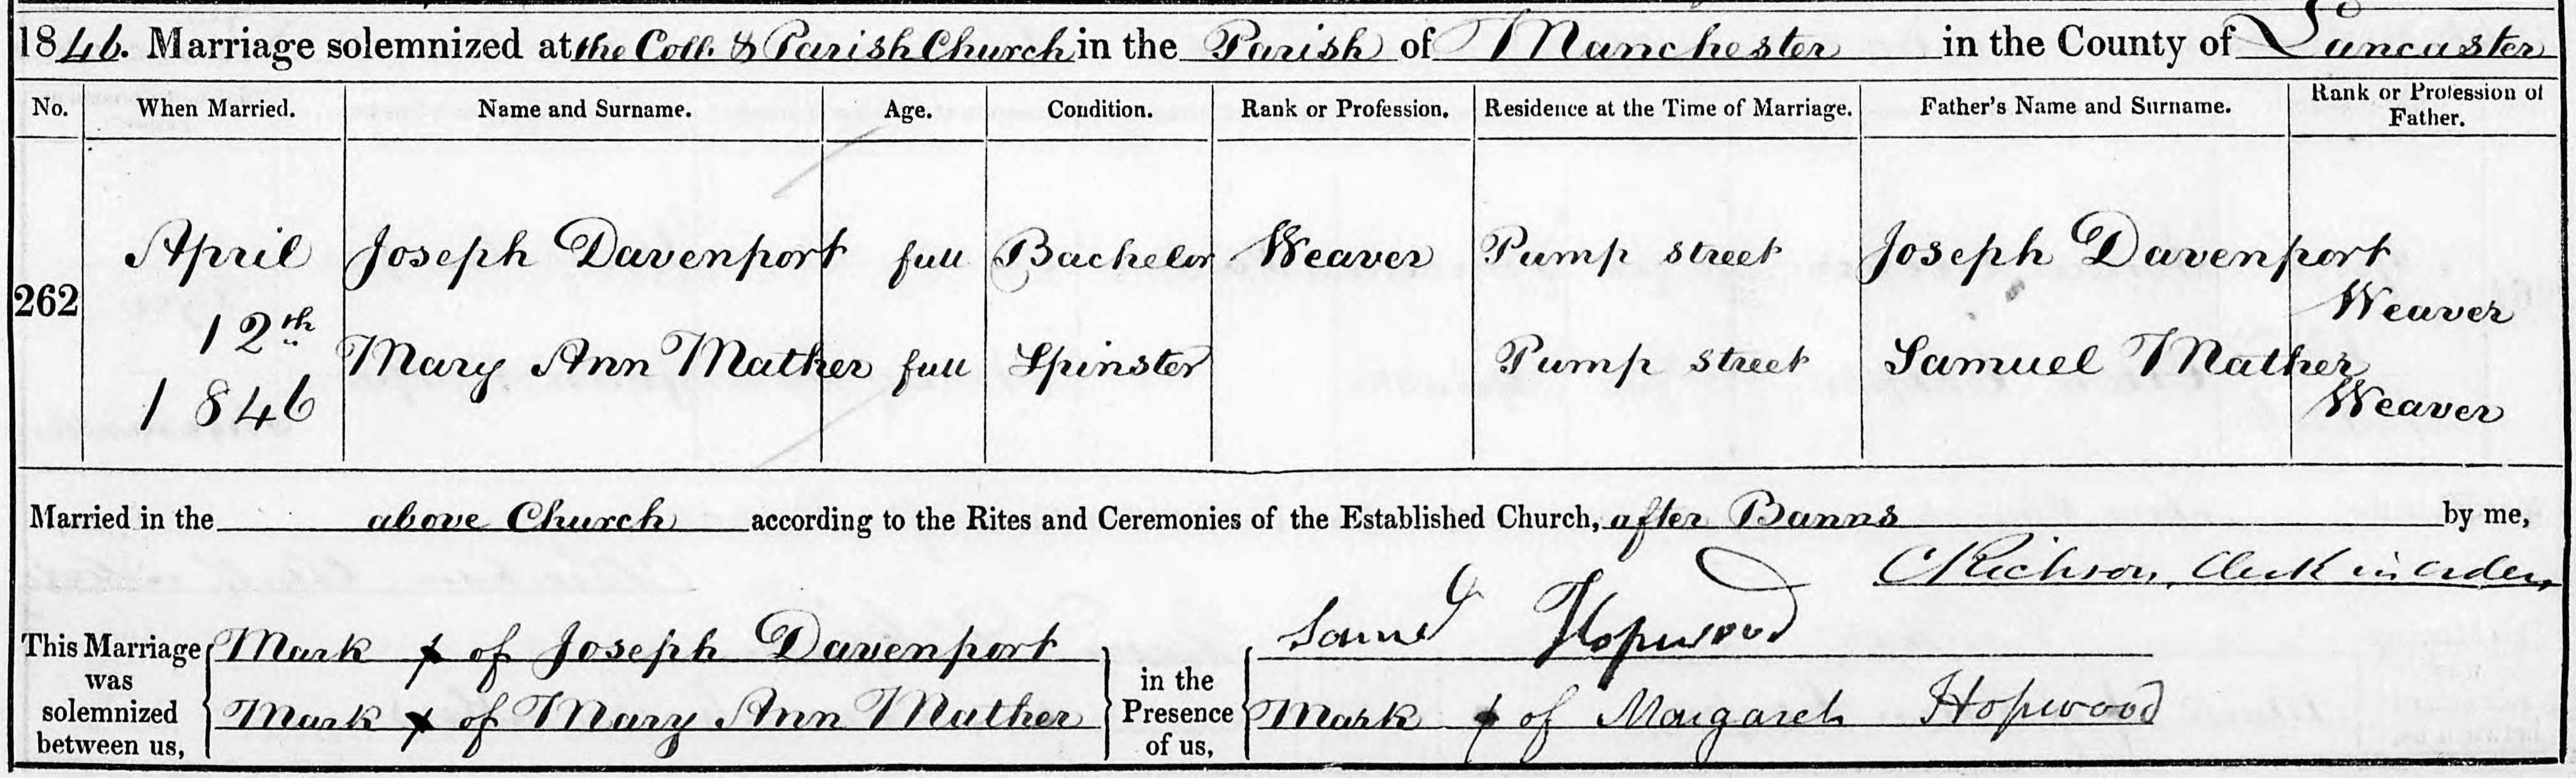 1846. Marriage solemnized at the Coll. & Parish Church in the Parish of Manchester in the County of Lancaster
No. When Married. Name and Surname. Age. Condition. Rank or Profession. Residence at the Time of Marriage. Father's Name and Surname. Rank or Profession of Father.
262 April 12th 1846
Joseph Davenport full Bachelor Weaver Pump street Joseph Davenport Weaver
Mary Ann Mather full Spinster Pump street Samuel Mather Weaver
Married in the above Church according to the Rites and Ceremonies of the Established Church, after Banns by me,
C Richson, Clerk in Orders,
This Marriage was solemnized between us,
Mark x of Joseph Davenport
Mark x of Mary Ann Mather
in the Presence of us,
Saml Hopwood
Mark x of Margaret Hopwood